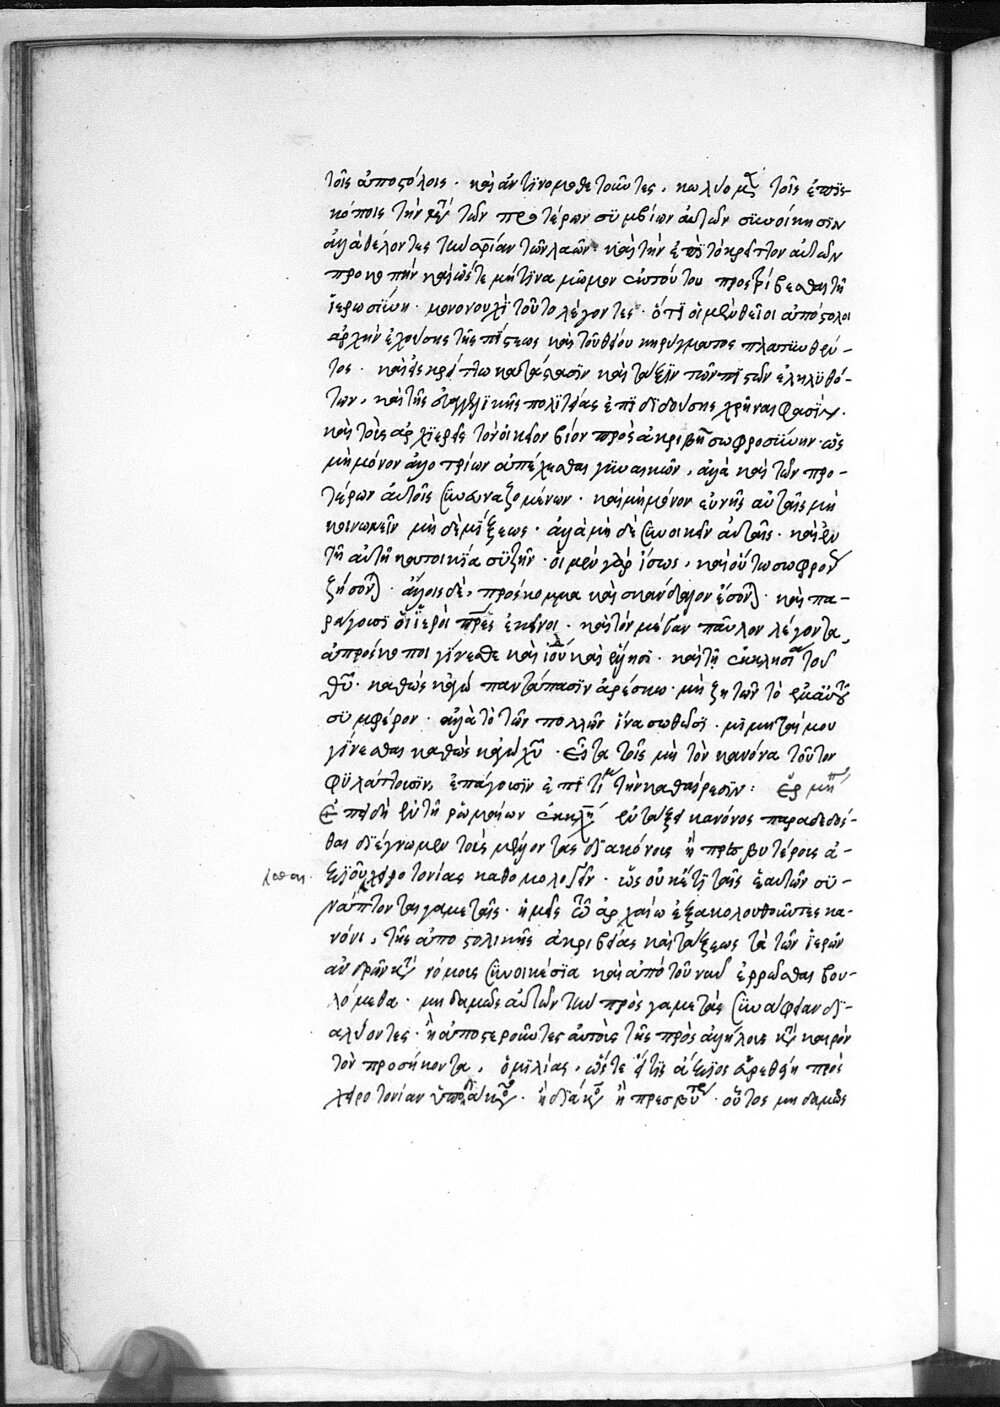 τοῖς ἀποστόλοις · καὶ ἀντινομοθετοῦντες, κωλύομεν τοῖς ἐπισ-
κόποις τὴν μετὰ τῶν προτέρων συμβίων αὐτῶν συνοίκησιν
ἀλλὰ θέλοντες τὴν σωτηρίαν τῶν λαῶν · καὶ τὴν ἐπὶ τὸ κρεῖττον αὐτῶν
προκοπὴν καὶ ὥστε μήτινα μῶμον προστρίβεσθαι τῇ
ἱερωσύνῃ · μονονουχὶ τοῦτο λέγοντες · ὅτι οἱ μὲν θεῖοι ἀπόστολοι
ἀρχὴν ἐχούσης τῆς πίστεως καὶ τοῦ θείου κηρύγματος πλατυνθέν-
τος · καὶ εἰς κρείττω κατάστασιν καὶ τάξιν τῶν πιστῶν ἐληλυθό-
των, καὶ τῆς εὐαγγελικῆς πολιτείας ἐπιδιδούσης χρῆναι φασὶν ·
καὶ τοὺς ἀρχιερεῖς τὸν οἰκεῖον βίον πρὸς ἀκριβῆ σωφροσύνην · ὡς
μὴ μόνον ἀλλοτρίων ἀπέχεσθαι γυναικῶν, ἀλλὰ καὶ τῶν προ-
τέρων αὐτοῖς συνοναζομένων · καὶ μὴ μόνον εὐνῆς αὐταῖς μὴ
κοινωνεῖν μὴ δὲ μίξεως · ἀλλὰ μὴ δὲ συνοικεῖν αὐταῖς · καὶ ἐν
τῇ αὐτῇ κατοικία συζῆν · οἱ μὲν γὰρ ἴσως, καὶ οὕτω σωφρον
ζήσονται · ἄλλοις δὲ, πρόσκομμα καὶ σκάνδαλον ἔσονται · καὶ πα-
ράγουσι οἱ ἱεροὶ πατέρες ἐκεῖνοι · καὶ τὸν μέγαν παῦλον λέγοντα,
ἀπρόσκοποι γίνεσθε καὶ ἰουδαίοις καὶ ἕλλησι · καὶ τῇ ἐκκλησία τοῦ
θεοῦ · καθὼς κἀγὼ παντάπασιν ἀρέσκω · μὴ ζητῶν τὸ ἐμαυτοῦ
συμφέρον · ἀλλὰ τὸ τῶν πολλῶν ἵνα σωθῶσι · μιμηταί μου
γίνεσθαι καθὼς κἀγὼ χριστοῦ · εἶτα τοῖς μὴ τὸν κανόνα τοῦτον
φυλάττουσιν, ἐπάγουσιν ἐπιτίμιον τὴν καθαίρεσιν :
ἐπειδὴ ἐν τῇ ῥωμαίων ἐκκλησία ἐν τάξει κανόνος παραδεδόσ-
θαι διέγνωμεν τοὺς μέλλοντας διακόνους ἢ πρεσβυτέρους ἀ-
ξιοῦσθαι χειροτονίας καθομολογεῖν · ὡς οὐκέτι ταῖς ἑαυτῶν συ-
νάπτονται γαμεταῖς · ἡμεῖς τῷ ἀρχαίω ἐξακολουθοῦντες κα-
νόνι, τῆς ἀποστολικῆς ἀκριβείας καὶ τάξεως τὰ τῶν ἱερῶν
ἀνδρῶν κατὰ νόμους συνοικέσια καὶ ἀπὸ τοῦ νῦν ἐρρῶσθαι βου-
λόμεθα · μηδαμῶς αὐτῶν τὴν πρὸς γαμετὰς συνάφειαν δι-
αλύοντες · ἢ ἀποστεροῦντες αὐτοὺς τῆς πρὸς ἀλλήλους κατὰ καιρὸν
τὸν προσήκοντα, ὁμιλίας, ὥστε εἴ τις ἄξιος εὑρεθῇ πρὸς
χειροτονίαν ὑποδιακόνου · ἢ διακόνου ἢ πρεσβυτέρου · οὗτος μηδαμῶς